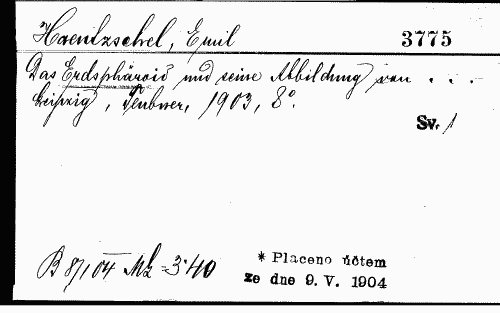 Haentzschel, Emil 3775
Das Erdsphäroid und seine Abbildung von . . .
Leipzig, Teubner, 1903, 8°.
Sv. 1
* Placeno účtem
B 8/1 04 Mk 3·40
ze dne 9. V. 1904